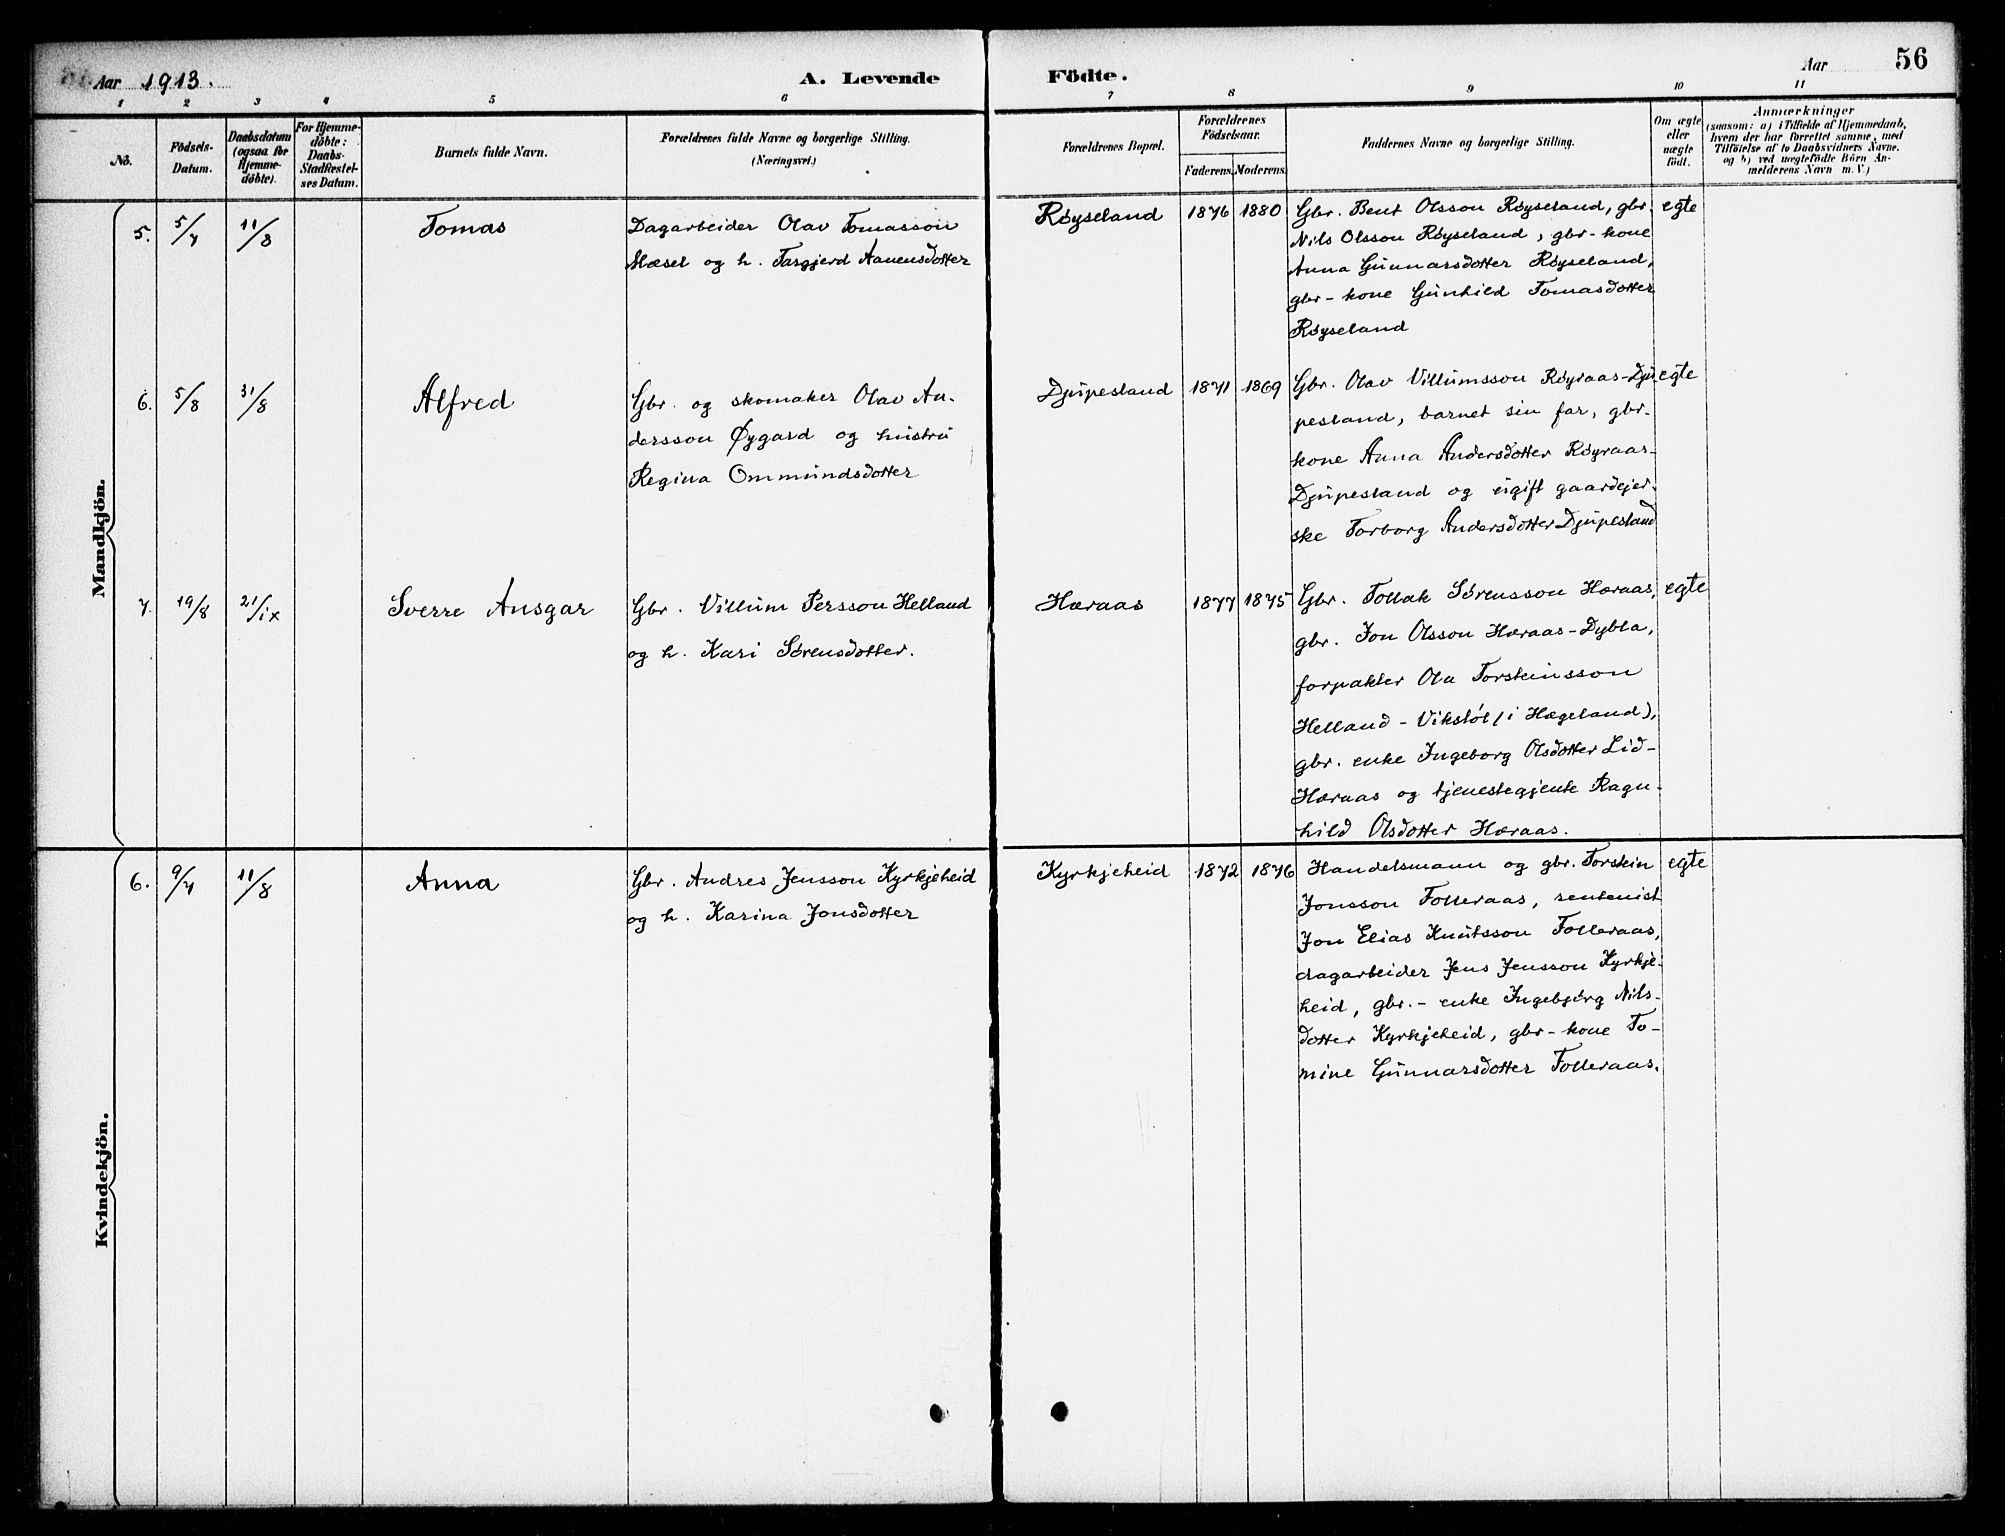 Aar 1913.
A. Levende
Födte.
Aar
56
1 2 3 4 5 6 7 8 9 10 11
No.
Födsels-
Datum.
Daabsdatum
(ogsaa for
Hjemme-
döbte).
For Hjemme-
döbte:
Daabs-
Stadfæstel-
ses Datum.
Barnets fulde Navn.
Forældrenes fulde Navne og borgerlige Stilling.
(Næringsvei.)
Forældrenes Bopæl.
Forældrenes
Födselsaar.
Faderens. Moderens.
Faddernes Navne og borgerlige Stilling.
Om ægte
eller
uægte
födt.
Anmærkninger
(saasom: a) i Tilfælde af Hjemmedaab,
hvem der har forrettet samme, med
Tilföielse af to Daabsvidners Navne.
og b) ved uægtefödte Börn An-
melderens Navn m. V.)
Mandkjön.
5. 5/7 11/8 Tomas
Dagarbeider Olav Tomasson
Mæsel og h. Targjerd Aanensdotter
Røyseland 1876 1880
Gbr. Bent Olsson Røyseland, gbr.
Nils Olsson Røyseland, gbr-kone
Anna Gunnarsdotter Røyseland,
gbr-kone Gunhild Tomasdotter
Røyseland
egte
6. 5/8 31/8 Alfred
Gbr. og skomaker Olav An-
dersson Øygard og hustru
Regina Ommundsdotter
Djupesland 1871 1869
Gbr. Olav Villumsson Røyraas-Dju
pesland, barnet sin far, gbr-
kone Anna Andersdotter Røyraas-
Djupesland og ugift gaardejer-
ske Torborg Andersdotter Djupesland
egte
7. 19/8 21/ix Sverre Ansgar
Gbr. Villum Persson Helland
og h. Kari Sørensdotter.
Hæraas 1877 1875
Gbr. Tollak Sørensson Hæraas,
gbr. Jon Olsson Hæraas-Dybla,
forpakter Ola Torsteinsson
Helland - Vikstøl (i Hægeland),
gbr. enke Ingeborg Olsdotter Lid-
Hæraas og tjenestegjente Ragn-
hild Olsdotter Hæraas.
egte
Kvindekjön.
6. 9/7 11/8 Anna
Gbr. Andres Jensson Kyrkjeheid
og h. Karina Jonsdotter
Kyrkjeheid 1872 1876
Handelsmann og gbr. Torstein
Jonsson Tolleraas, rentenist
Jon Elias Knutsson Tolleraas,
dagarbeider Jens Jensson Kyrkje-
heid, gbr.- enke Ingebjørg Nils-
dotter Kyrkjeheid, gbr-kone To-
mine Gunnarsdotter Tolleraas.
egte